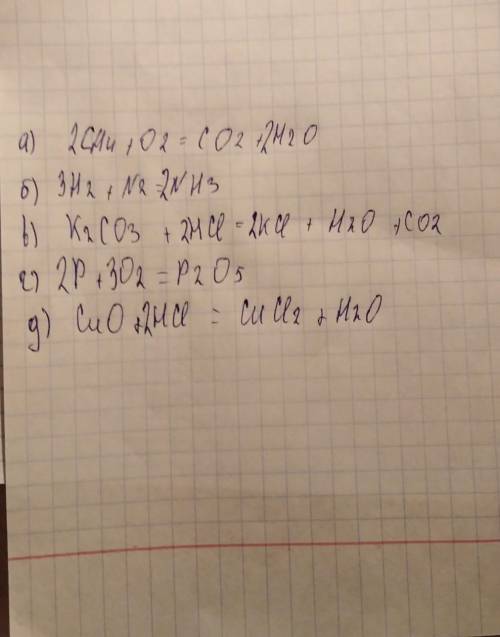 а) 2CH4 + O2 = CO2 + 2H2O
б) 3H2 + N2 = 2NH3
в) K2CO3 + 2HCl = 2KCl + H2O + CO2
г) 2P + 3O2 = P2O5
д) CuO + 2HCl = CuCl2 + H2O